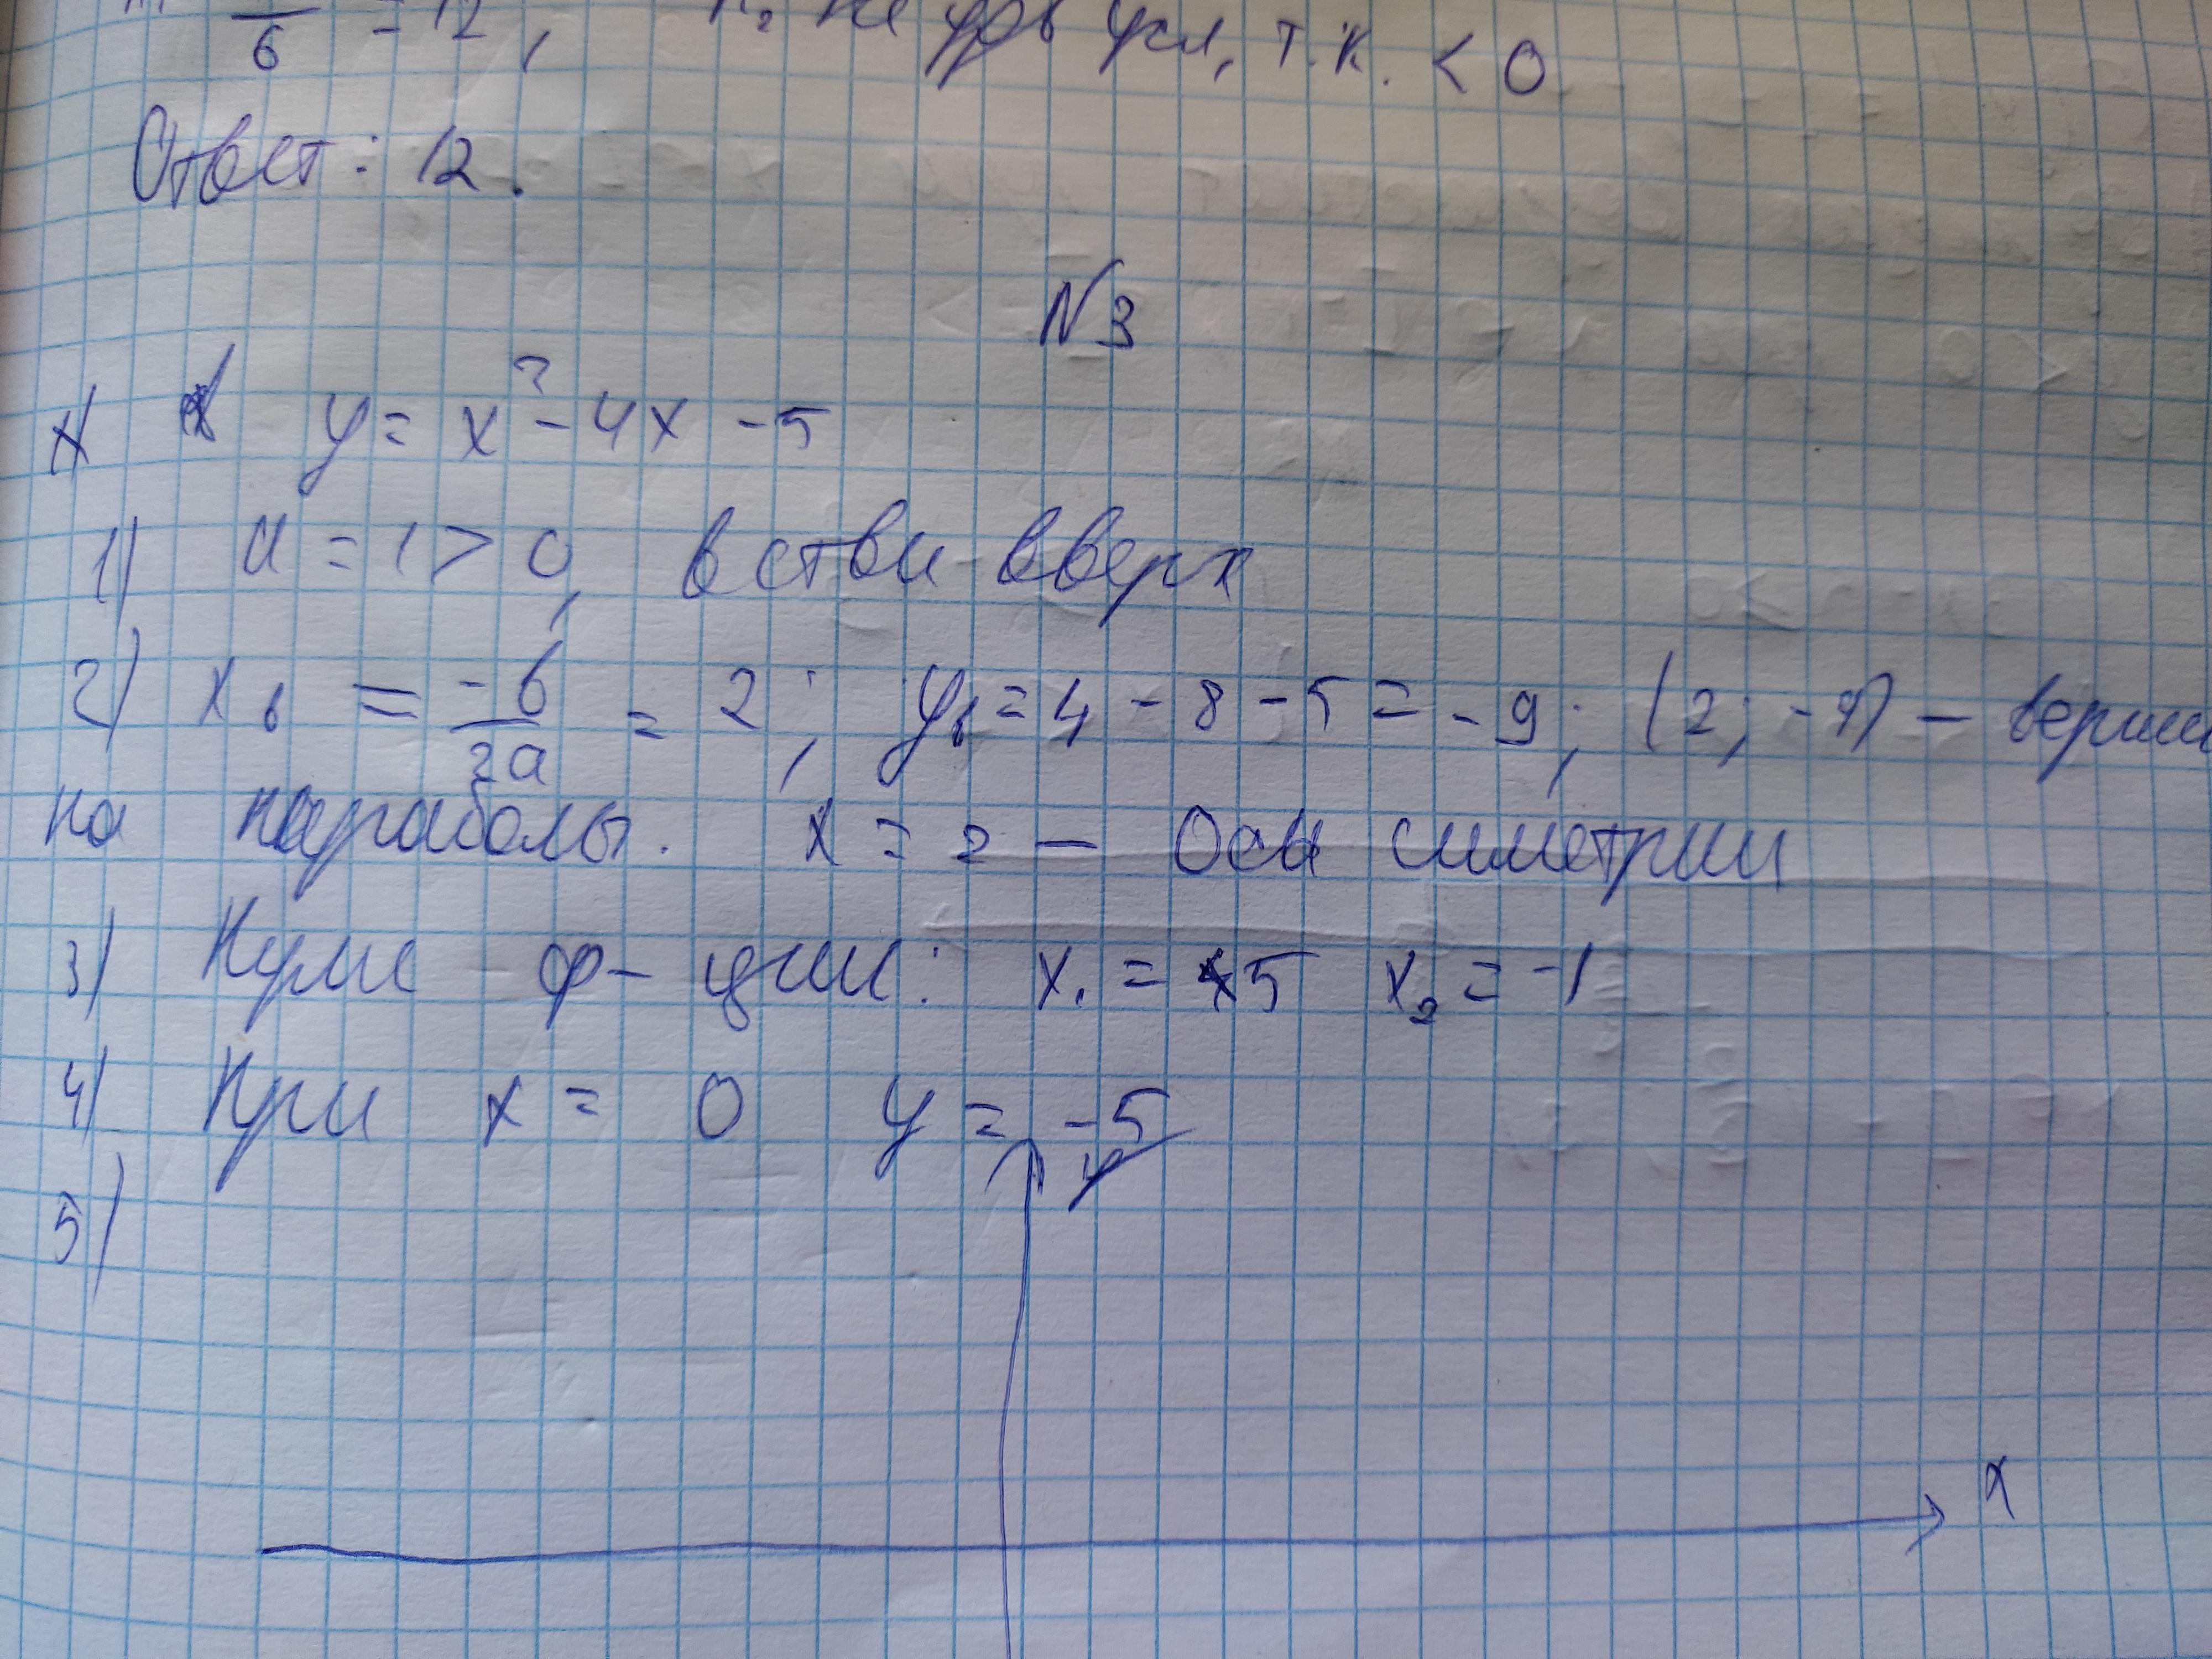 6 = 12, не удов усл, т.к. < 0
Ответ: 12.
N3
y = x² - 4x - 5
1) a = 1 > 0, ветви вверх
2) xв = -b/2a = 2; yв = 4 - 8 - 5 = -9; (2; -9) — верши
на параболы. x = 2 — Ось симетрии
3) Нули ф-ции: x₁ = 5 x₂ = -1
4) При x = 0 y = -5
y
5)
x